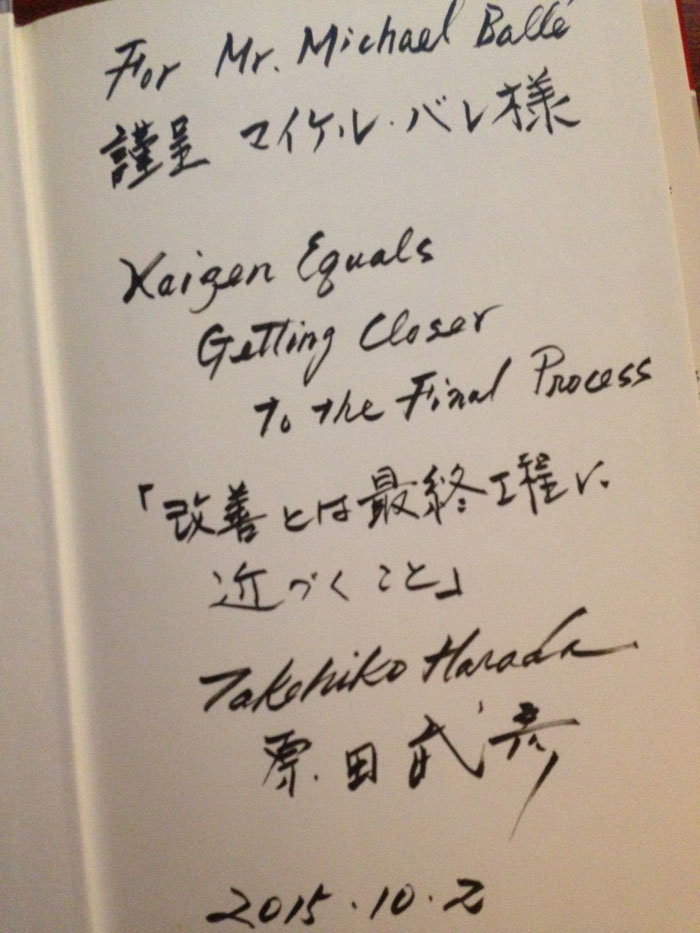 For Mr. Michael Ballé
謹呈 マイケル・バレ様
Kaizen Equals
Getting Closer
To The Final Process
「改善とは最終工程に
近づくこと」
Takehiko Harada
原田武彦
2015.10.2